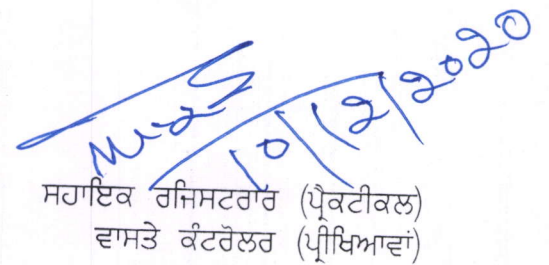 10/12/2020
ਸਹਾਇਕ ਰਜਿਸਟਰਾਰ (ਪ੍ਰੈਕਟੀਕਲ)
ਵਾਸਤੇ ਕੰਟਰੋਲਰ (ਪ੍ਰੀਖਿਆਵਾਂ)